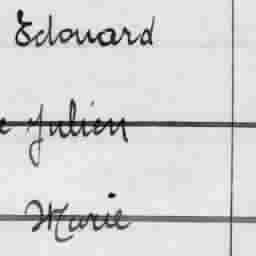 Edouard
Julien
Marie